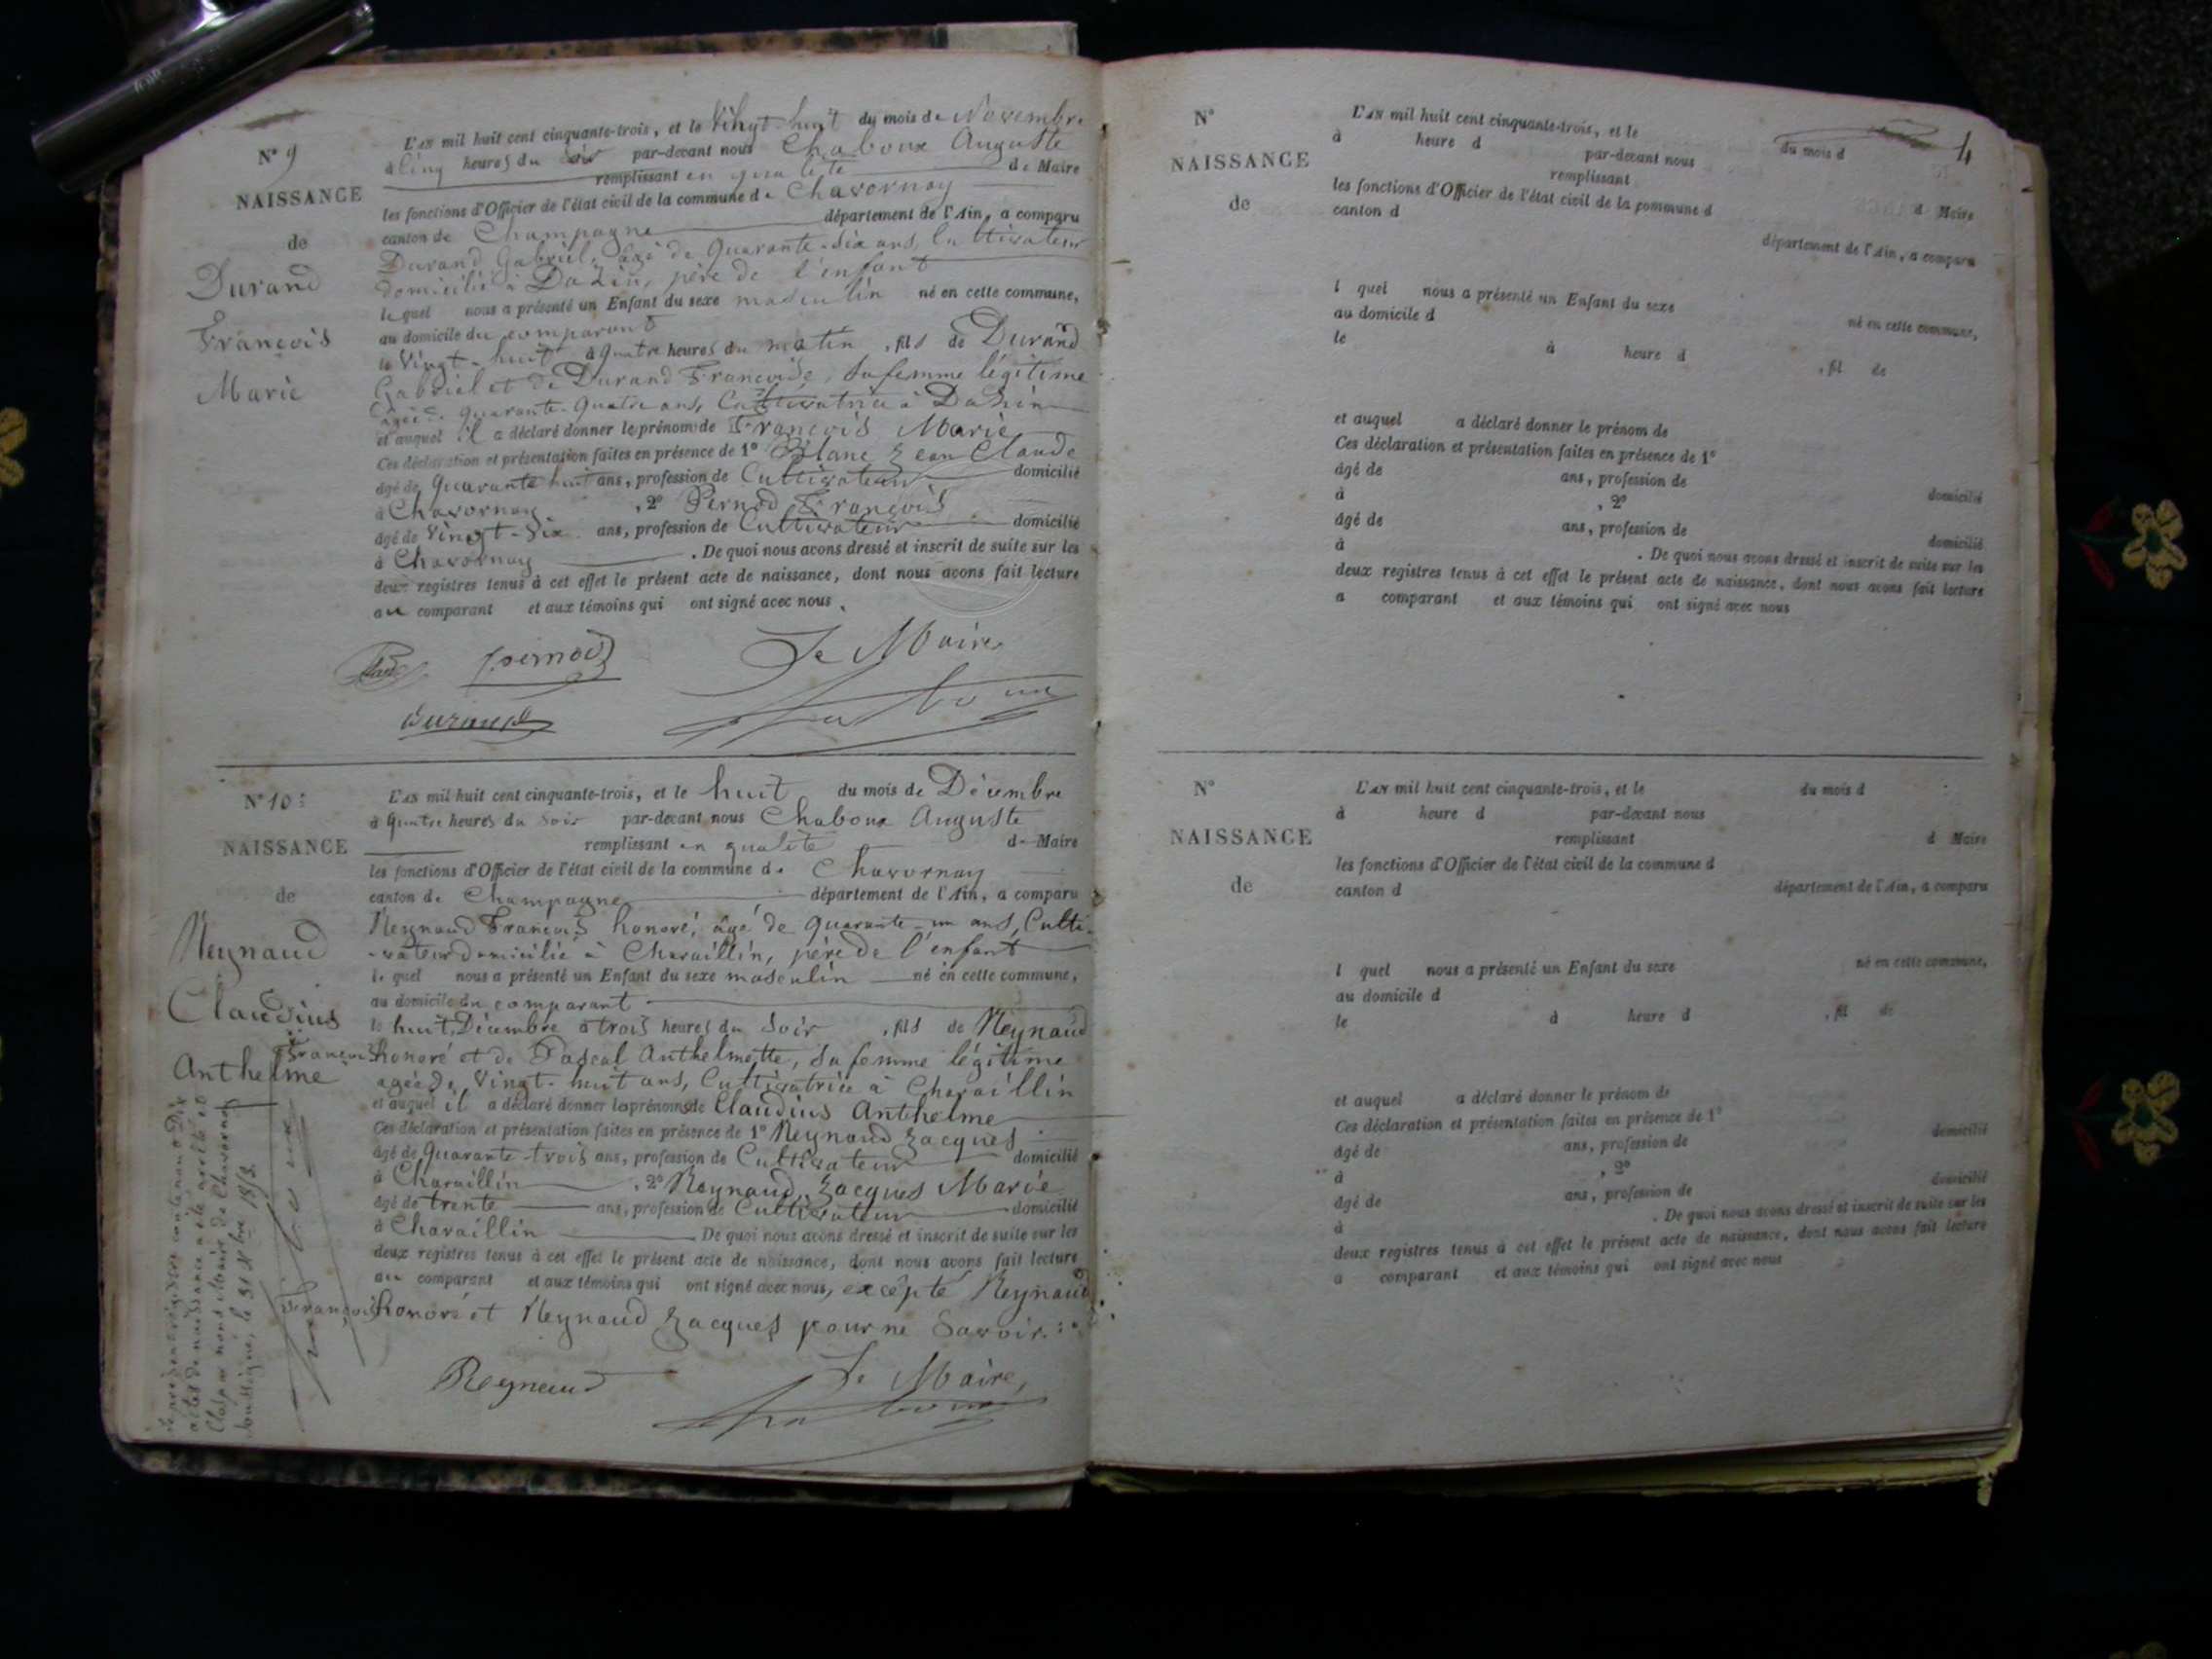 N° 9
NAISSANCE
de
Durand
François
Marie
L'an mil huit cent cinquante-trois, et le Vingt-huit du mois de Novembre
à Cinq heures du soir par-devant nous Chaboux Auguste
remplissant en qualité de Maire
les fonctions d'Officier de l'état civil de la commune de Chavornay
canton de Champagne département de l'Ain, a comparu
Durand Gabriel, âgé de Quarante-six ans, Cultivateur
domicilié à Dazin, père de l'enfant
lequel nous a présenté un Enfant du sexe masculin né en cette commune,
au domicile du comparant
le Vingt-huit à Quatre heures du matin, fils de Durand
Gabriel et de Durand Françoise, sa femme légitime
âgée de quarante-Quatre ans, Cultivatrice à Dazin
et auquel il a déclaré donner le prénom de François Marie
Ces déclaration et présentation faites en présence de 1° Blanc Jean Claude
âgé de Quarante huit ans, profession de Cultivateur domicilié
à Chavornay, 2° Pernod François
âgé de Vingt-Six ans, profession de Cultivateur domicilié
à Chavornay. De quoi nous avons dressé et inscrit de suite sur les
deux registres tenus à cet effet le présent acte de naissance, dont nous avons fait lecture
au comparant et aux témoins qui ont signé avec nous.
pernod Le Maire
durand
N° 10
NAISSANCE
de
Reynaud
Claudius
Anthelme
L'an mil huit cent cinquante-trois, et le huit du mois de Décembre
à Quatre heures du Soir par-devant nous Chaboux Auguste
remplissant en qualité de Maire
les fonctions d'Officier de l'état civil de la commune de Chavornay
canton de Champagne département de l'Ain, a comparu
Reynaud François honoré, âgé de quarante-un ans, Culti-
-vateur domicilié à Charaillin, père de l'enfant
lequel nous a présenté un Enfant du sexe masculin né en cette commune,
au domicile du comparant
le huit Décembre à trois heures du Soir, fils de Reynaud
François honoré et de Pascal Anthelmette, sa femme légitime
agée de Vingt-huit ans, Cultivatrice à Charaillin
et auquel il a déclaré donner les prénoms de Claudius Anthelme
Ces déclaration et présentation faites en présence de 1° Reynaud Jacques
âgé de Quarante-trois ans, profession de Cultivateur domicilié
à Charaillin, 2° Reynaud, Jacques Marie
âgé de trente ans, profession de Cultivateur domicilié
à Charaillin De quoi nous avons dressé et inscrit de suite sur les
deux registres tenus à cet effet le présent acte de naissance, dont nous avons fait lecture
au comparant et aux témoins qui ont signé avec nous, excepté Reynaud
François honoré et Reynaud Jacques pour ne Savoir.
Reynaud Le Maire,
Le présent régistre contenant Dix
actes de naissance a été arrêté et
Clos par nous Maire de Chavornay
soussigné, le 31 Xbre 1853.
4
N°
NAISSANCE
de
L'an mil huit cent cinquante-trois, et le du mois d
à heure d par-devant nous
remplissant d Maire
les fonctions d'Officier de l'état civil de la commune d
canton d département de l'Ain, a comparu
l quel nous a présenté un Enfant du sexe né en cette commune,
au domicile d
le à heure d , fil de
et auquel a déclaré donner le prénom de
Ces déclaration et présentation faites en présence de 1°
âgé de ans, profession de domicilié
à , 2°
âgé de ans, profession de domicilié
à . De quoi nous avons dressé et inscrit de suite sur les
deux registres tenus à cet effet le présent acte de naissance, dont nous avons fait lecture
a comparant et aux témoins qui ont signé avec nous
N°
NAISSANCE
de
L'an mil huit cent cinquante-trois, et le du mois d
à heure d par-devant nous
remplissant d Maire
les fonctions d'Officier de l'état civil de la commune d
canton d département de l'Ain, a comparu
l quel nous a présenté un Enfant du sexe né en cette commune,
au domicile d
le à heure d , fil de
et auquel a déclaré donner le prénom de
Ces déclaration et présentation faites en présence de 1°
âgé de ans, profession de domicilié
à , 2°
âgé de ans, profession de domicilié
à . De quoi nous avons dressé et inscrit de suite sur les
deux registres tenus à cet effet le présent acte de naissance, dont nous avons fait lecture
a comparant et aux témoins qui ont signé avec nous